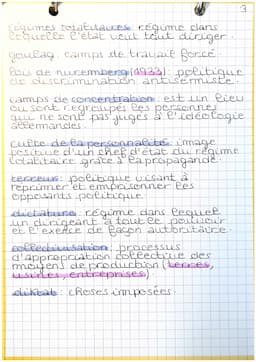 3
régimes totalitaires: régime dans
lequelle l'état veut tout diriger.
goulag: camps de travail forcé.
lois de nuremberg (1933): politique
de discrimination antisermiste.
camps de concentration: est un lieu
ou sont regroupés les personnes
qui ne sont pas jugés à l'idéologie
allemandes.
culte de la personnalité: image
positive d'un chef d'état du régime
totalitaire grâce à la propagande.
terreur: politique visant à
réprimer et emprisonner les
opposants politique.
dictature: régime dans lequel
un dirigeant à tout le pouvoir
et l'exerce de façon autoritaire.
collectivisation: processus
d'appropriation collective des
moyens de production (terres,
usines, entreprises)
diktat: choses imposées.